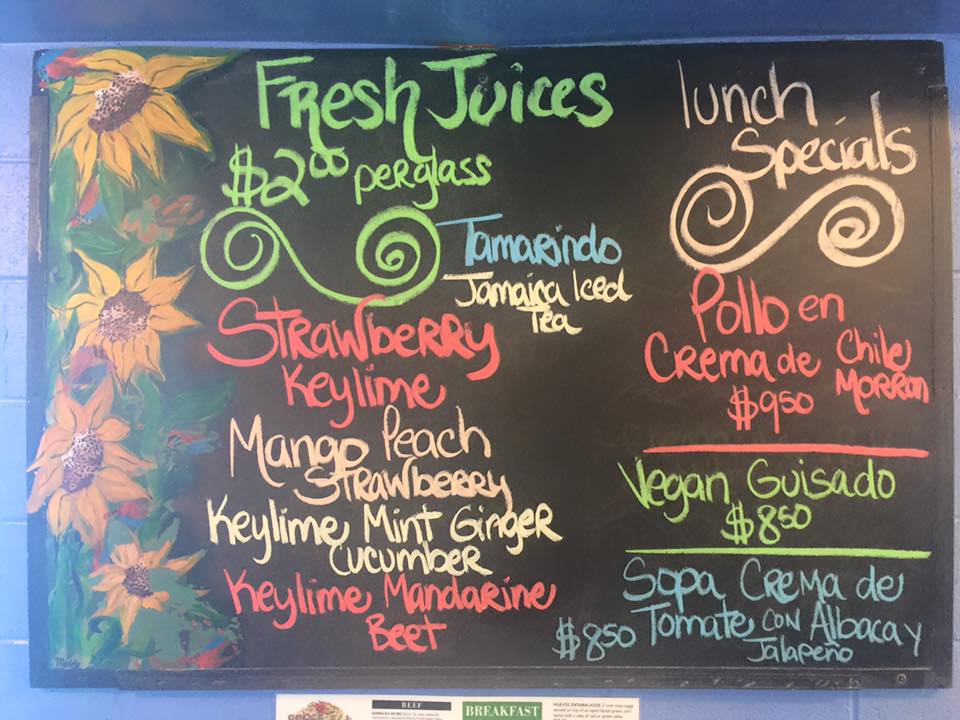 Fresh Juices
$2.00 per glass
Tamarindo
Jamaica Iced
Tea
Strawberry
Keylime
Mango Peach
Strawberry
Keylime Mint Ginger
Cucumber
Keylime Mandarine
Beet
lunch
Specials
Pollo en
Crema de Chile
Morron
$9.50
Vegan Guisado
$8.50
Sopa Crema de
Tomate con Albaca y
Jalapeño
$8.50
BEEF
BREAKFAST